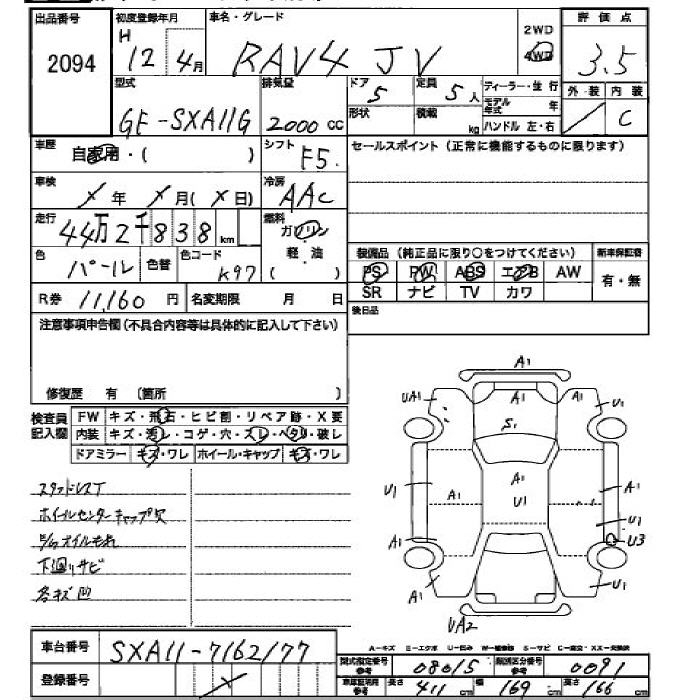 出品番号 初度登録年月 車名・グレード 2WD 評価点
2094 H 12 4月 RAV4 JV 4WD 3.5
型式 排気量 ドア 5 定員 5人 ディーラー・並行 外装 内装
モデル年式 年
GF-SXA11G 2000cc 形状 積載 kg ハンドル 左・右 C
車歴 自家用・( ) シフト F5. セールスポイント(正常に機能するものに限ります)
車検 X年 X月(X日) 冷房 AAC
走行 44万2千838km 燃料 ガソリン
軽・油
色 パール 色替 色コード K97 ( ) 装備品(純正品に限り○をつけてください) 新車保証書
PS PW ABS エアB AW 有・無
R券 11,160円 名変期限 月 日 SR ナビ TV カワ
注意事項申告欄(不具合内容等は具体的に記入して下さい) 後日品
修復歴 有 〔箇所 〕
検査員記入欄 FW キズ・飛石・ヒビ割・リペア跡・X要
内装 キズ・汚レ・コゲ・穴・スレ・ヘタリ・破レ
ドアミラー キズ・ワレ ホイール・キャップ キズ・ワレ
A1
UA1 A1 U1
S1
A1
U1 A1 U1 A1
U1
A1 U3
A1 U1
UA2
スタッドレスT
ホイールセンターキャップ欠
オイルもれ
下廻りサビ
各キズ凹
A-キズ E-エクボ U-凹み W-補修跡 S-サビ C-腐食・XX-交換済
車台番号 SXA11-7162177
登録番号 X
型式指定番号 参考 08015 類別区分番号 参考 0091
車庫証明用 参考 長さ 411cm 幅 169cm 高さ 166cm